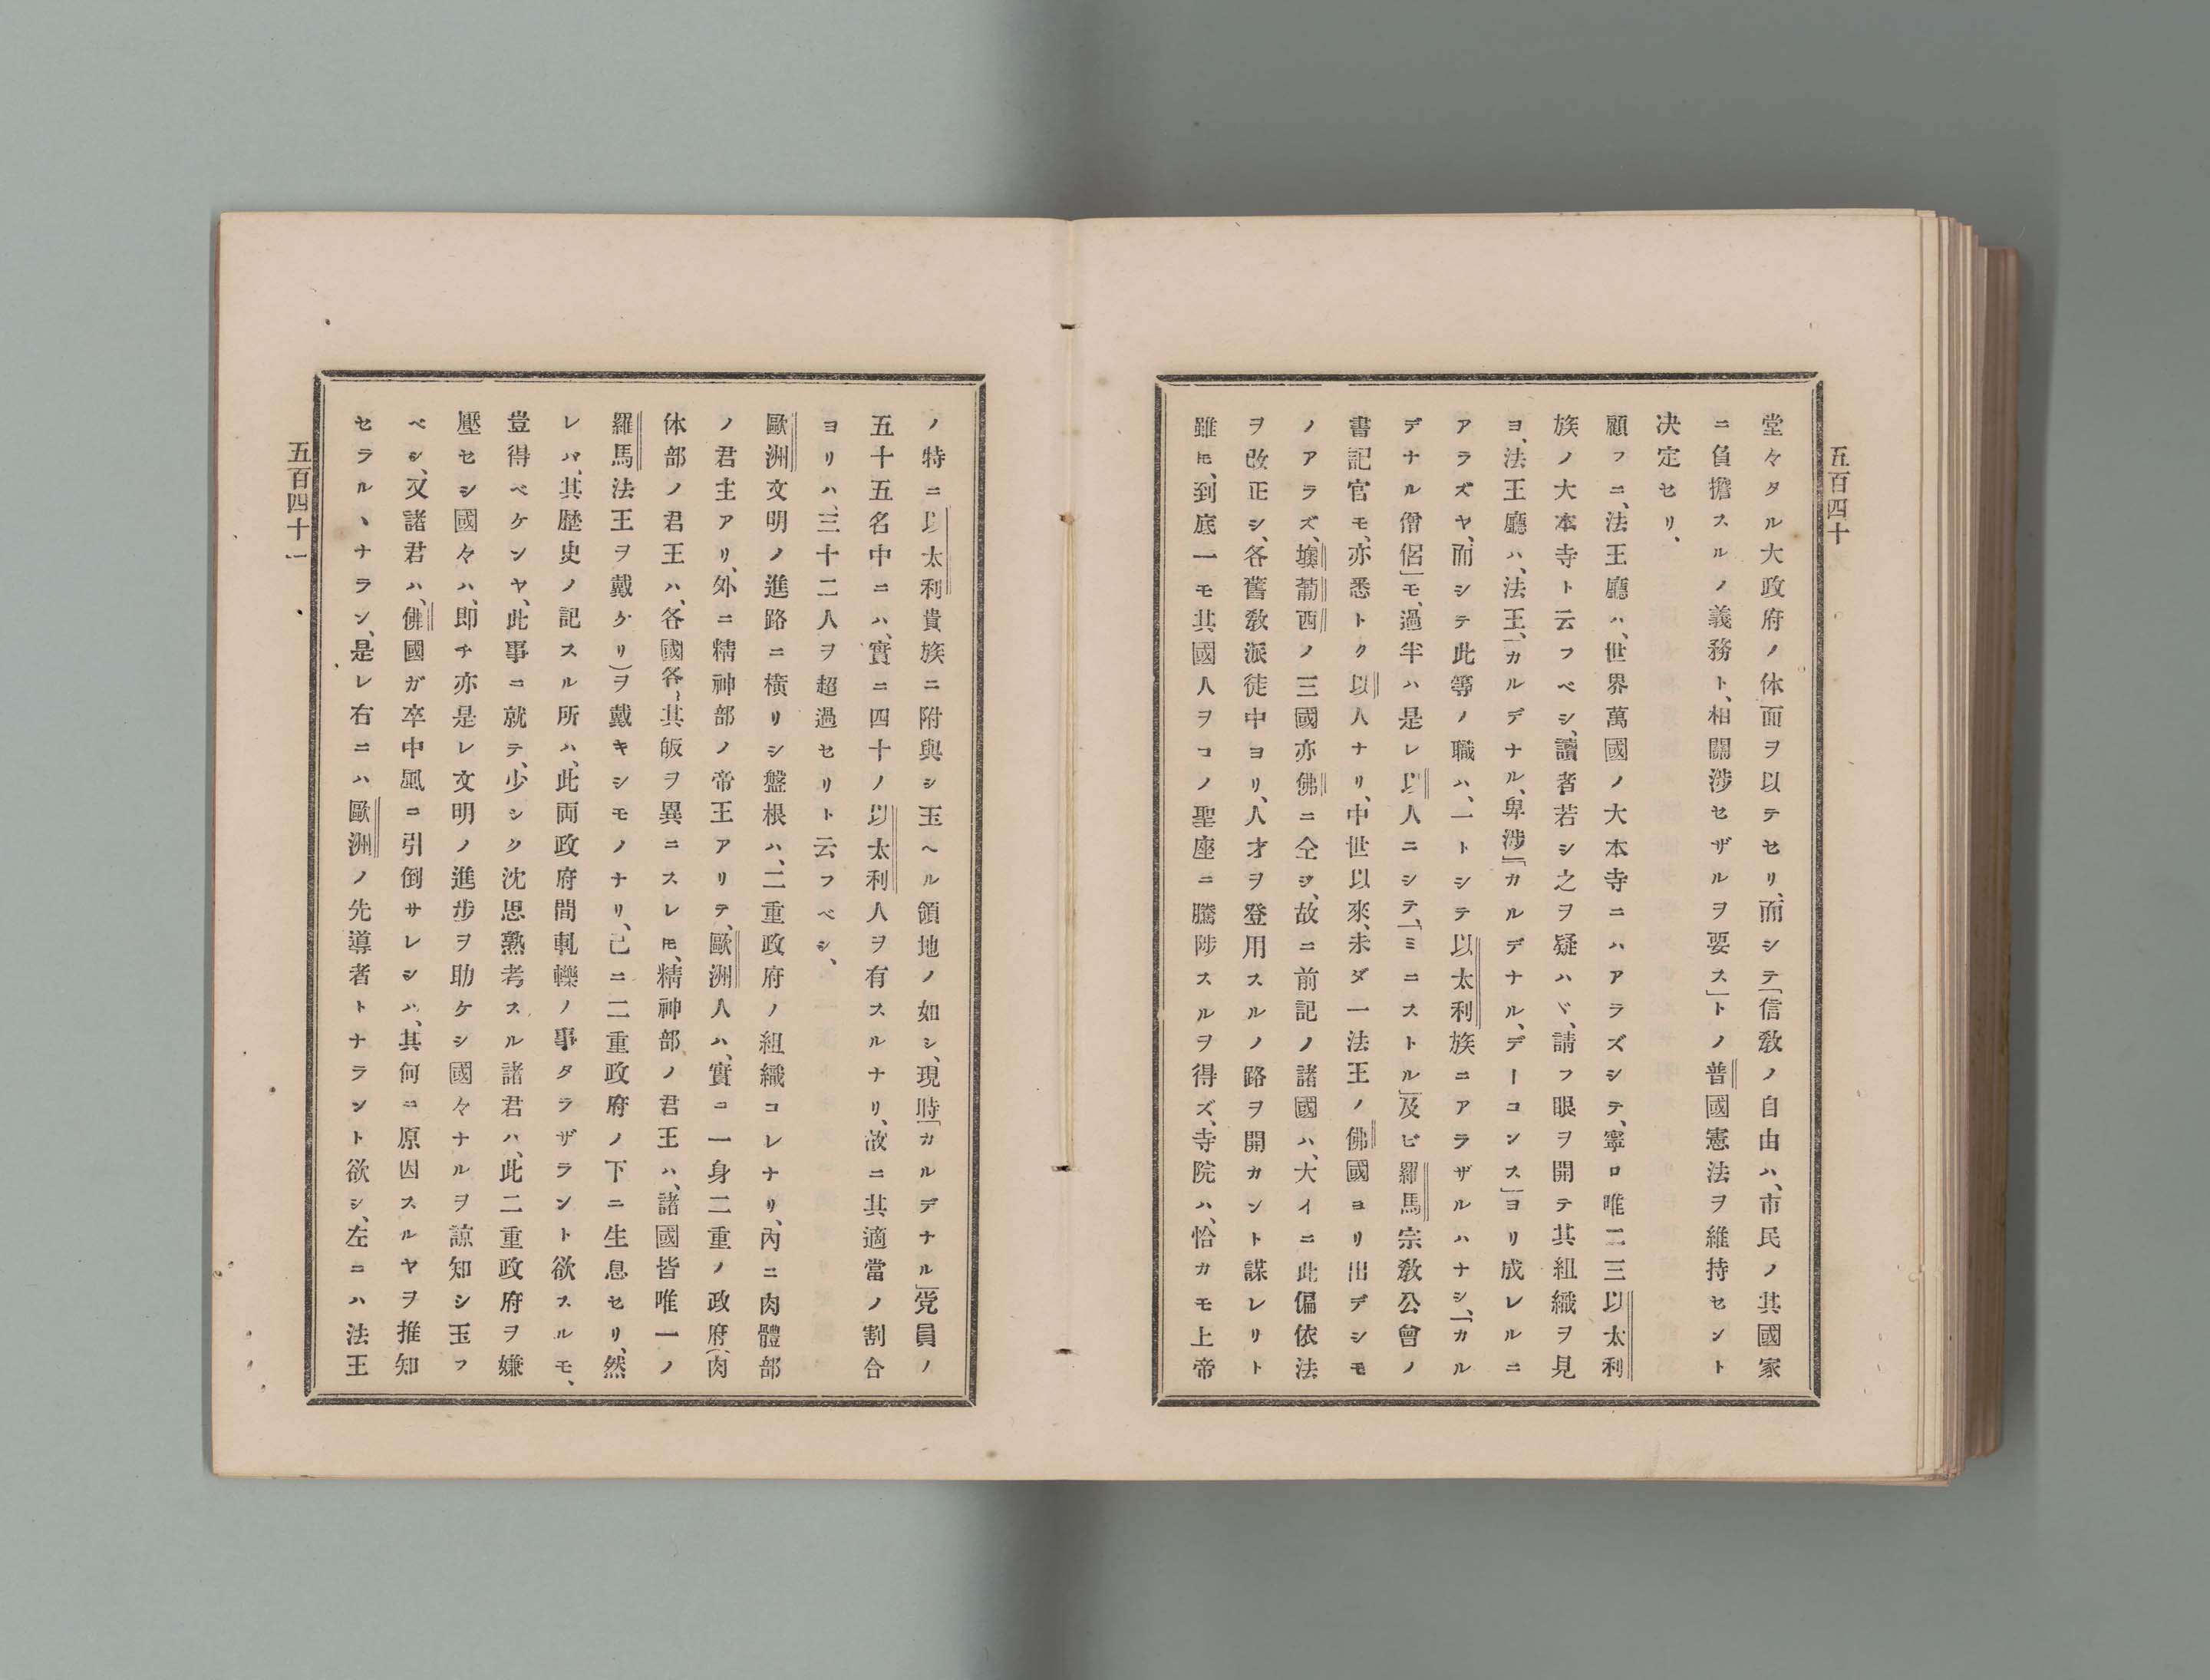 五百四十
堂々タル大政府ノ体面ヲ以テセリ、而シテ「信敎ノ自由ハ、市民ノ其國家
ニ負擔スルノ義務ト、相關涉セザルヲ要ス」トノ普國憲法ヲ維持セント
决定セリ、
顧フニ、法王廳ハ、世界萬國ノ大本寺ニハアラズシテ、寧ロ唯二三以太利
族ノ大本寺ト云フベシ、讀者若シ之ヲ疑ハヾ、請フ眼ヲ開テ其組織ヲ見
ヨ、法王廳ハ、法王、「カルデナル、卑涉」「カルデナル、デーコンス」ヨリ成レルニ
アラズヤ、而シテ此等ノ職ハ、一トシテ以太利族ニアラザルハナシ、「カル
デナル僧侶」モ、過半ハ是レ以人ニシテ、「ミニストル」及ビ羅馬宗敎公會ノ
書記官モ、亦悉トク以人ナリ、中世以來、未ダ一法王ノ佛國ヨリ出デシモ
ノアラズ、墺葡西ノ三國亦佛ニ仝ジ、故ニ前記ノ諸國ハ、大イニ此偏依法
ヲ改正シ、各舊敎派徒中ヨリ、人才ヲ登用スルノ路ヲ開カント謀レリト
雖ㇳモ、到底一モ其國人ヲコノ聖座ニ騰陟スルヲ得ズ、寺院ハ、恰カモ上帝
ノ特ニ以太利貴族ニ附與シ玉ヘル領地ノ如シ、現時「カルデナル」党員ノ
五十五名中ニハ、實ニ四十ノ以太利人ヲ有スルナリ、故ニ其適當ノ割合
ヨリハ、三十二人ヲ超過セリト云フベシ、
歐洲文明ノ進路ニ橫リシ盤根ハ、二重政府ノ組織コレナリ、內ニ肉體部
ノ君主アリ、外ニ精神部ノ帝王アリテ、歐洲人ハ、實ニ一身二重ノ政府(肉
体部ノ君王ハ、各國各〻其皈ヲ異ニスレㇳモ、精神部ノ君王ハ、諸國皆唯一ノ
羅馬法王ヲ戴ケリ)ヲ戴キシモノナリ、已ニ二重政府ノ下ニ生息セリ、然
レバ、其歷史ノ記スル所ハ、此両政府間軋轢ノ事タラザラント欲スルモ、
豈得ベケンヤ、此事ニ就テ、少シク沈思熟考スル諸君ハ、此二重政府ヲ嫌
壓セシ國々ハ、即チ亦是レ文明ノ進步ヲ助ケシ國々ナルヲ諒知シ玉フ
ベシ、又諸君ハ、佛國ガ卒中風ニ引倒サレシハ、其何ニ原因スルヤヲ推知
セラルヽナラン、是レ右ニハ歐洲ノ先導者トナラント欲シ、左ニハ法王
五百四十一